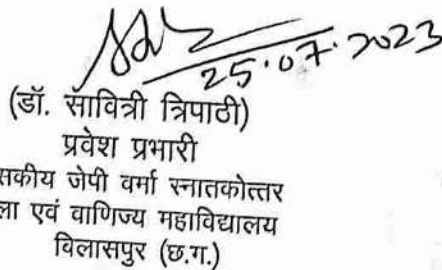 25.07.2023
(डॉ. सावित्री त्रिपाठी)
प्रवेश प्रभारी
सकीय जेपी वर्मा स्नातकोत्तर
ला एवं वाणिज्य महाविद्यालय
विलासपुर (छ.ग.)